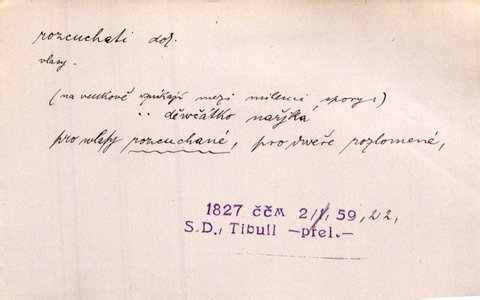 rozcuchati dok.
vlasy -
(na venkově vznikají mezi milenci spory:)
·· děwčátko nařjká
pro wlasy rozcuchané, pro dweře rozlomené,
1827 ččm 2/1, 59, 22,
S.D., Tibull -přel.-